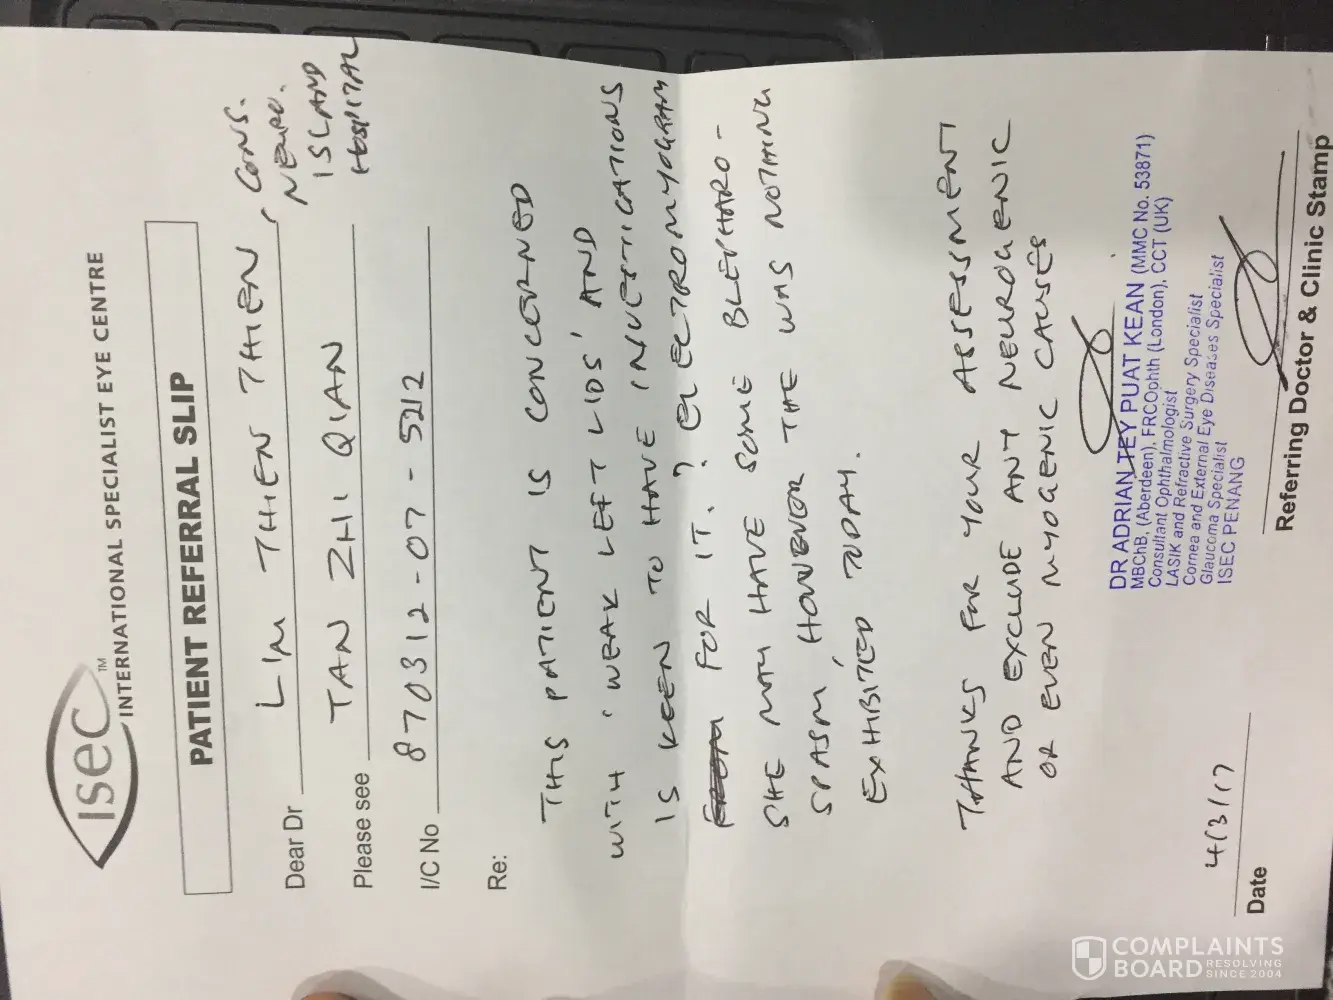 ISEC™
INTERNATIONAL SPECIALIST EYE CENTRE
PATIENT REFERRAL SLIP
Dear Dr LIM THEN THEN, CONS.
NEURO.
ISLAND
HOSPITAL
Please see TAN ZHI QIAN
I/C No 870312-07-5212
Re:
THIS PATIENT IS CONCERNED
WITH 'WEAK LEFT LIDS' AND
IS KEEN TO HAVE INVESTIGATIONS
FOR IT. ? ELECTROMYOGRAM
SHE MAY HAVE SOME BLEPHARO-
SPASM, HOWEVER THE WAS NOTHING
EXHIBITED TODAY.
THANKS FOR YOUR ASSESSMENT
AND EXCLUDE ANY NEUROGENIC
OR EVEN MYOGENIC CAUSES
DR ADRIAN TEY PUAT KEAN (MMC No. 53871)
MBChB, (Aberdeen), FRCOphth (London), CCT (UK)
Consultant Ophthalmologist
LASIK and Refractive Surgery Specialist
Cornea and External Eye Diseases Specialist
Glaucoma Specialist
ISEC PENANG
Date 4/3/17
Referring Doctor & Clinic Stamp
COMPLAINTS
BOARD RESOLVING
SINCE 2004